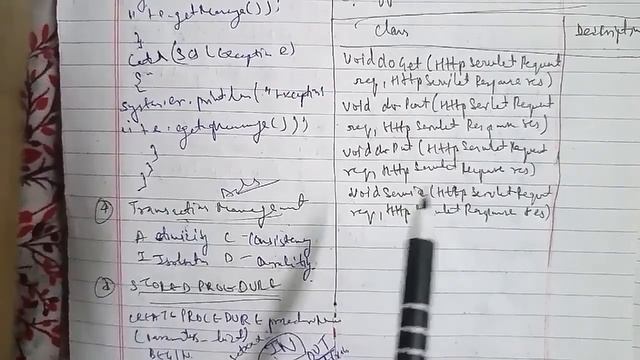 "+e.getMessage());
}
Catch (SQLException e)
{
System.err.println("Exception
"+e.getMessage());
}
}
}
Transaction Management
Atomicity C - Consistency
I Isolation D - Durability
STORED PROCEDURE
CREATE PROCEDURE procedurename
(parameter-list)
BEGIN
IN
OUT
Class
Description
void doGet (HttpServletRequest
req, HttpServletResponse res)
void doPost (HttpServletRequest
req, HttpServletResponse res)
void doPut (HttpServletRequest
req, HttpServletResponse res)
void Service (HttpServletRequest
req, Http let Response res)